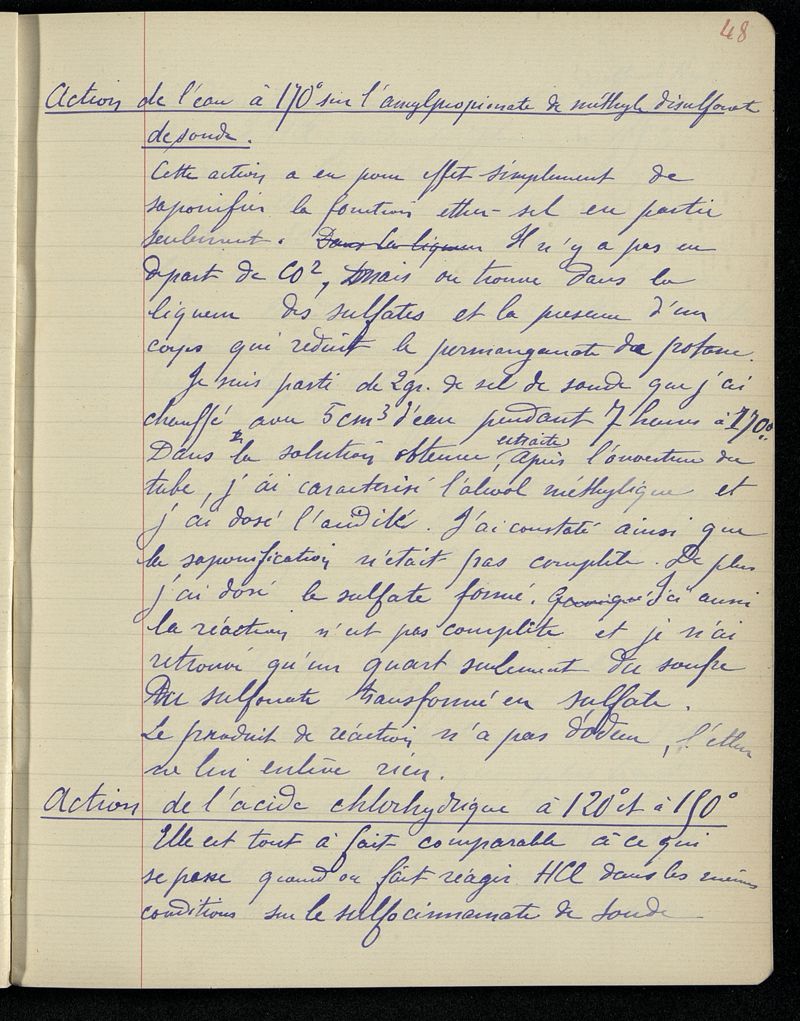 48
Action de l'eau à 170° sur l'amylpropionate de méthyle disulfonate
de soude.
Cette action a eu pour effet simplement de
saponifier la fonction ether-sel en partie
seulement. Dans la liqueur Il n'y a pas eu
départ de CO², mais on trouve dans la
liqueur des sulfates et la presence d'un
corps qui reduit le permanganate de potasse.
Je suis parti de 2gr. de sel de soude que j'ai
chauffé avec 5cm³ d'eau pendant 7 heures à 170°.
Dans la solution obtenue, extraite après l'ouverture du
tube, j'ai caracterisé l'alcool méthylique et
j'ai dosé l'acidité. J'ai constaté ainsi que
la saponification n'était pas complète. De plus
j'ai dosé le sulfate formé. Quoique Ici aussi
la réaction n'est pas complète et je n'ai
retrouvé qu'un quart seulement du soufre
Du sulfonate transformé en sulfate.
Le produit de réaction n'a pas d'odeur, l'éther
ne lui enlève rien.
Action de l'acide chlorhydrique à 120° et à 150°
Elle est tout à fait comparable à ce qui
se passe quand on fait réagir HCl dans les mêmes
conditions sur le sulfocinnamate de soude